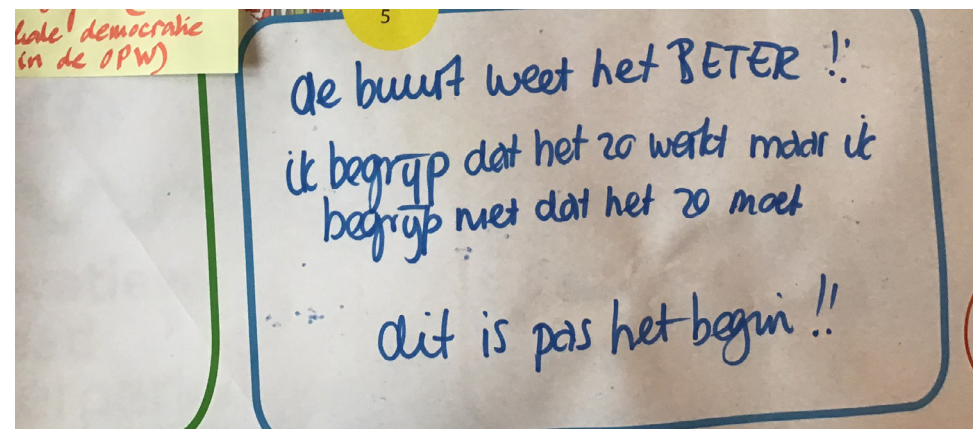 democratie
in de OPW)
5
de buurt weet het BETER !!
ik begrijp dat het zo werkt maar ik
begrijp niet dat het zo moet
dit is pas het begin !!